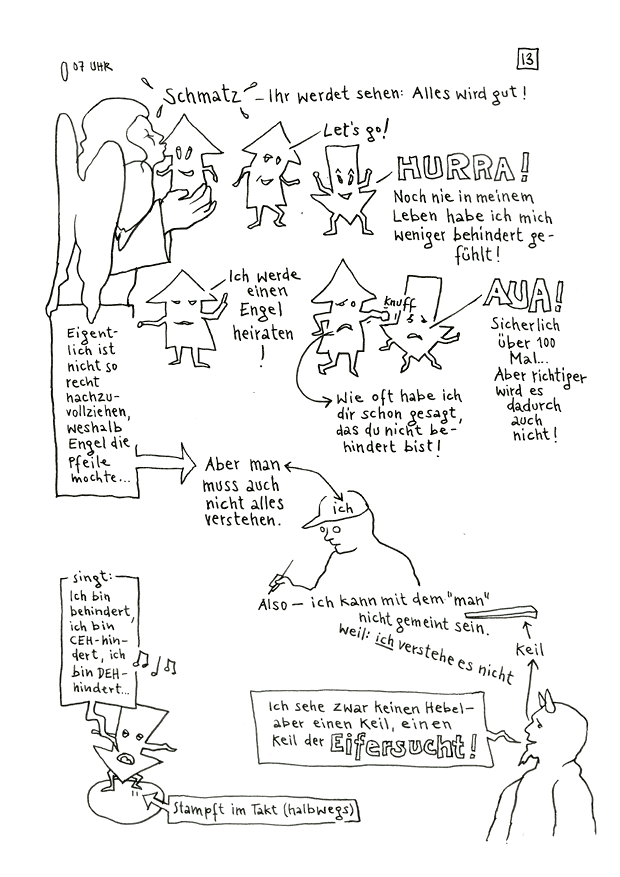 07 UHR
13
Schmatz – Ihr werdet sehen: Alles wird gut!
Let's go!
HURRA!
Noch nie in meinem
Leben habe ich mich
weniger behindert ge-
fühlt!
Ich werde
einen
Engel
heiraten
!
knuff
AUA!
Sicherlich
über 100
Mal...
Aber richtiger
wird es
dadurch
auch
nicht!
Wie oft habe ich
dir schon gesagt,
das du nicht be-
hindert bist!
Eigent-
lich ist
nicht so
recht
nachzu-
vollziehen,
weshalb
Engel die
Pfeile
mochte...
Aber man
muss auch
nicht alles
verstehen.
ich
Also – ich kann mit dem "man"
nicht gemeint sein.
Weil: ich verstehe es nicht
Keil
singt:
Ich bin
behindert,
ich bin
CEH-hin-
dert, ich
bin DEH-
hindert...
Ich sehe zwar keinen Hebel–
aber einen Keil, einen
Keil der Eifersucht!
Stampft im Takt (halbwegs)